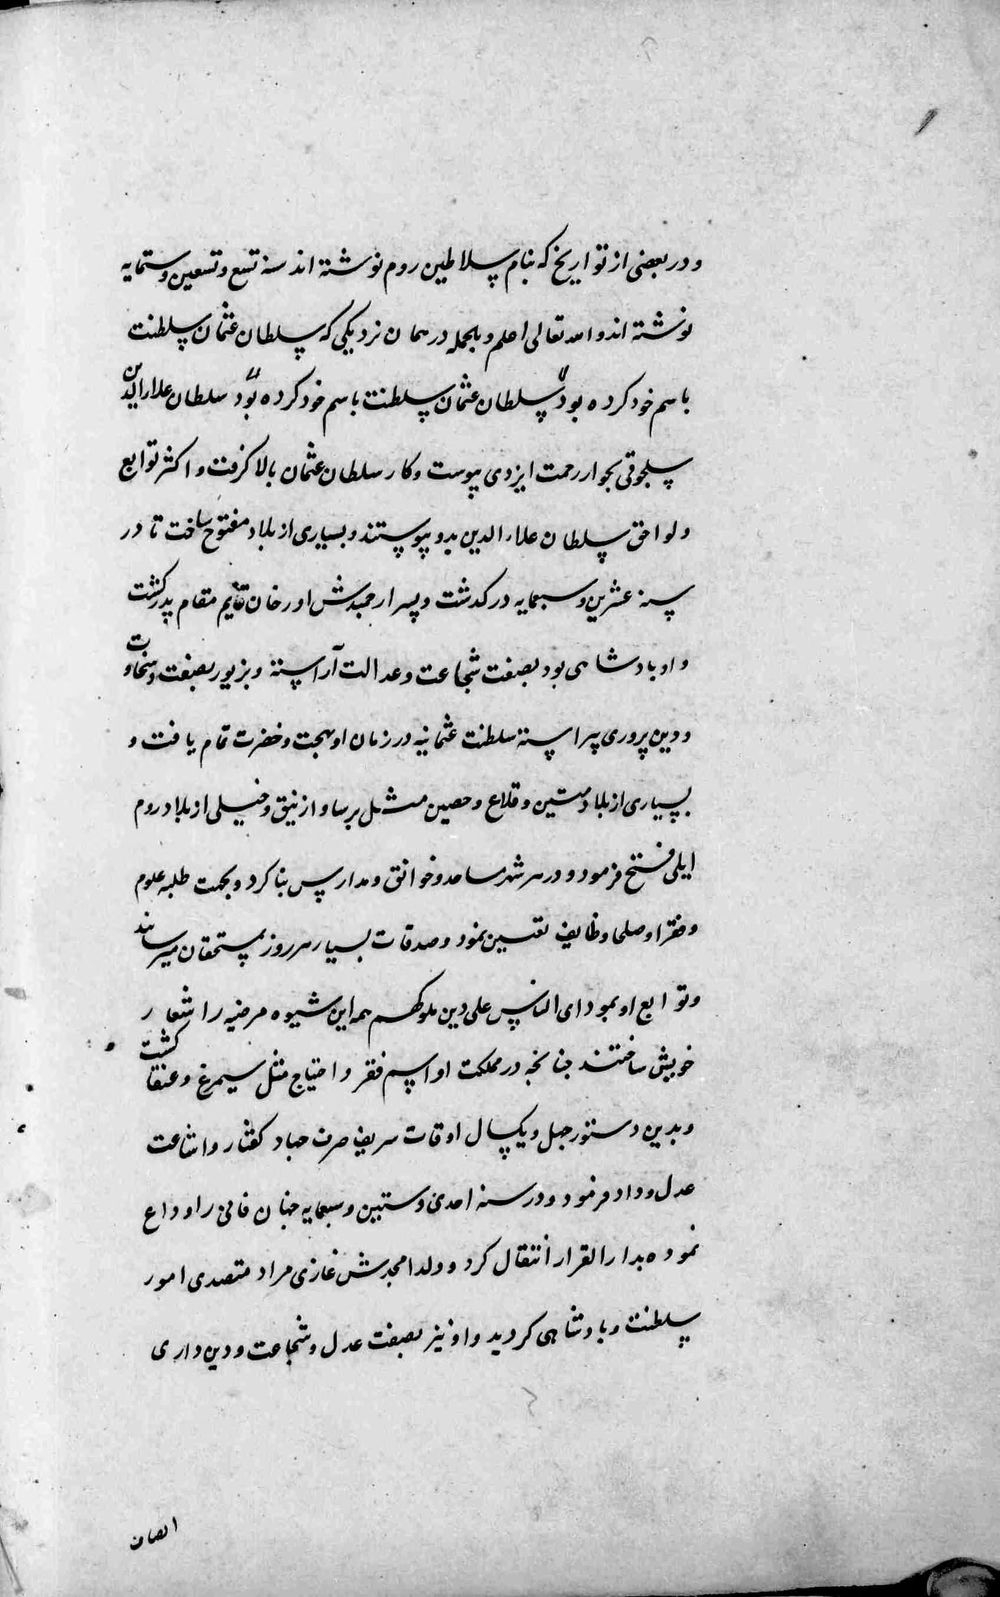 و در بعضی از تواریخ که بنام سلاطین روم نوشته اند سنه تسع و تسعین و ستمایه
نوشته اند و الله تعالی اعلم و بالجمله در همان نزدیکی که سلطان عثمان سلطنت
باسم خود کرده بود سلطان عثمان سلطنت باسم خود کرده بود سلطان علاء الدین
سلجوقی بجوار رحمت ایزدی پیوست و کار سلطان عثمان بالا گرفت و اکثر توابع
و لواحق سلطان علاء الدین بدو پیوستند و بسیاری از بلاد مفتوح ساخت تا در
سنه عشرین و سبعمایه درگذشت و پسر ارجمندش اورخان قایم مقام پدر گشت
و او پادشاهی بود بصفت شجاعت و عدالت آراسته و بزیور بصفت و سخاوت
و دین پروری پیراسته سلطنت عثمانیه در زمان او بهجت و خضرت تمام یافت و
بسیاری از بلاد متین و قلاع و حصین مثل برسا و ازنیق و خیلی از بلاد روم
ایلی فتح فرمود و در هر شهر مساجد و خوانق و مدارس بنا کرد و بجهت طلبه علوم
و فقرا و صلحا وظایف تعیین نمود و صدقات بسیار هر روز بمستحقان میرساند
و توابع او بمودای الناس علی دین ملوکهم همه این شیوه مرضیه را شعار
خویش ساختند چنانچه در مملکت او اسم فقر و احتیاج مثل سیمرغ و عنقا گشت
و بدین دستور چهل و یکسال اوقات شریف صرف جهاد کفار و اشاعت
عدل و داد فرمود و در سنه احدی و ستین و سبعمایه جهان فانی را وداع
نموده بدار القرار انتقال کرد و ولد امجدش غازی مراد متصدی امور
سلطنت و پادشاهی گردید و او نیز بصفت عدل و شجاعت و دین داری